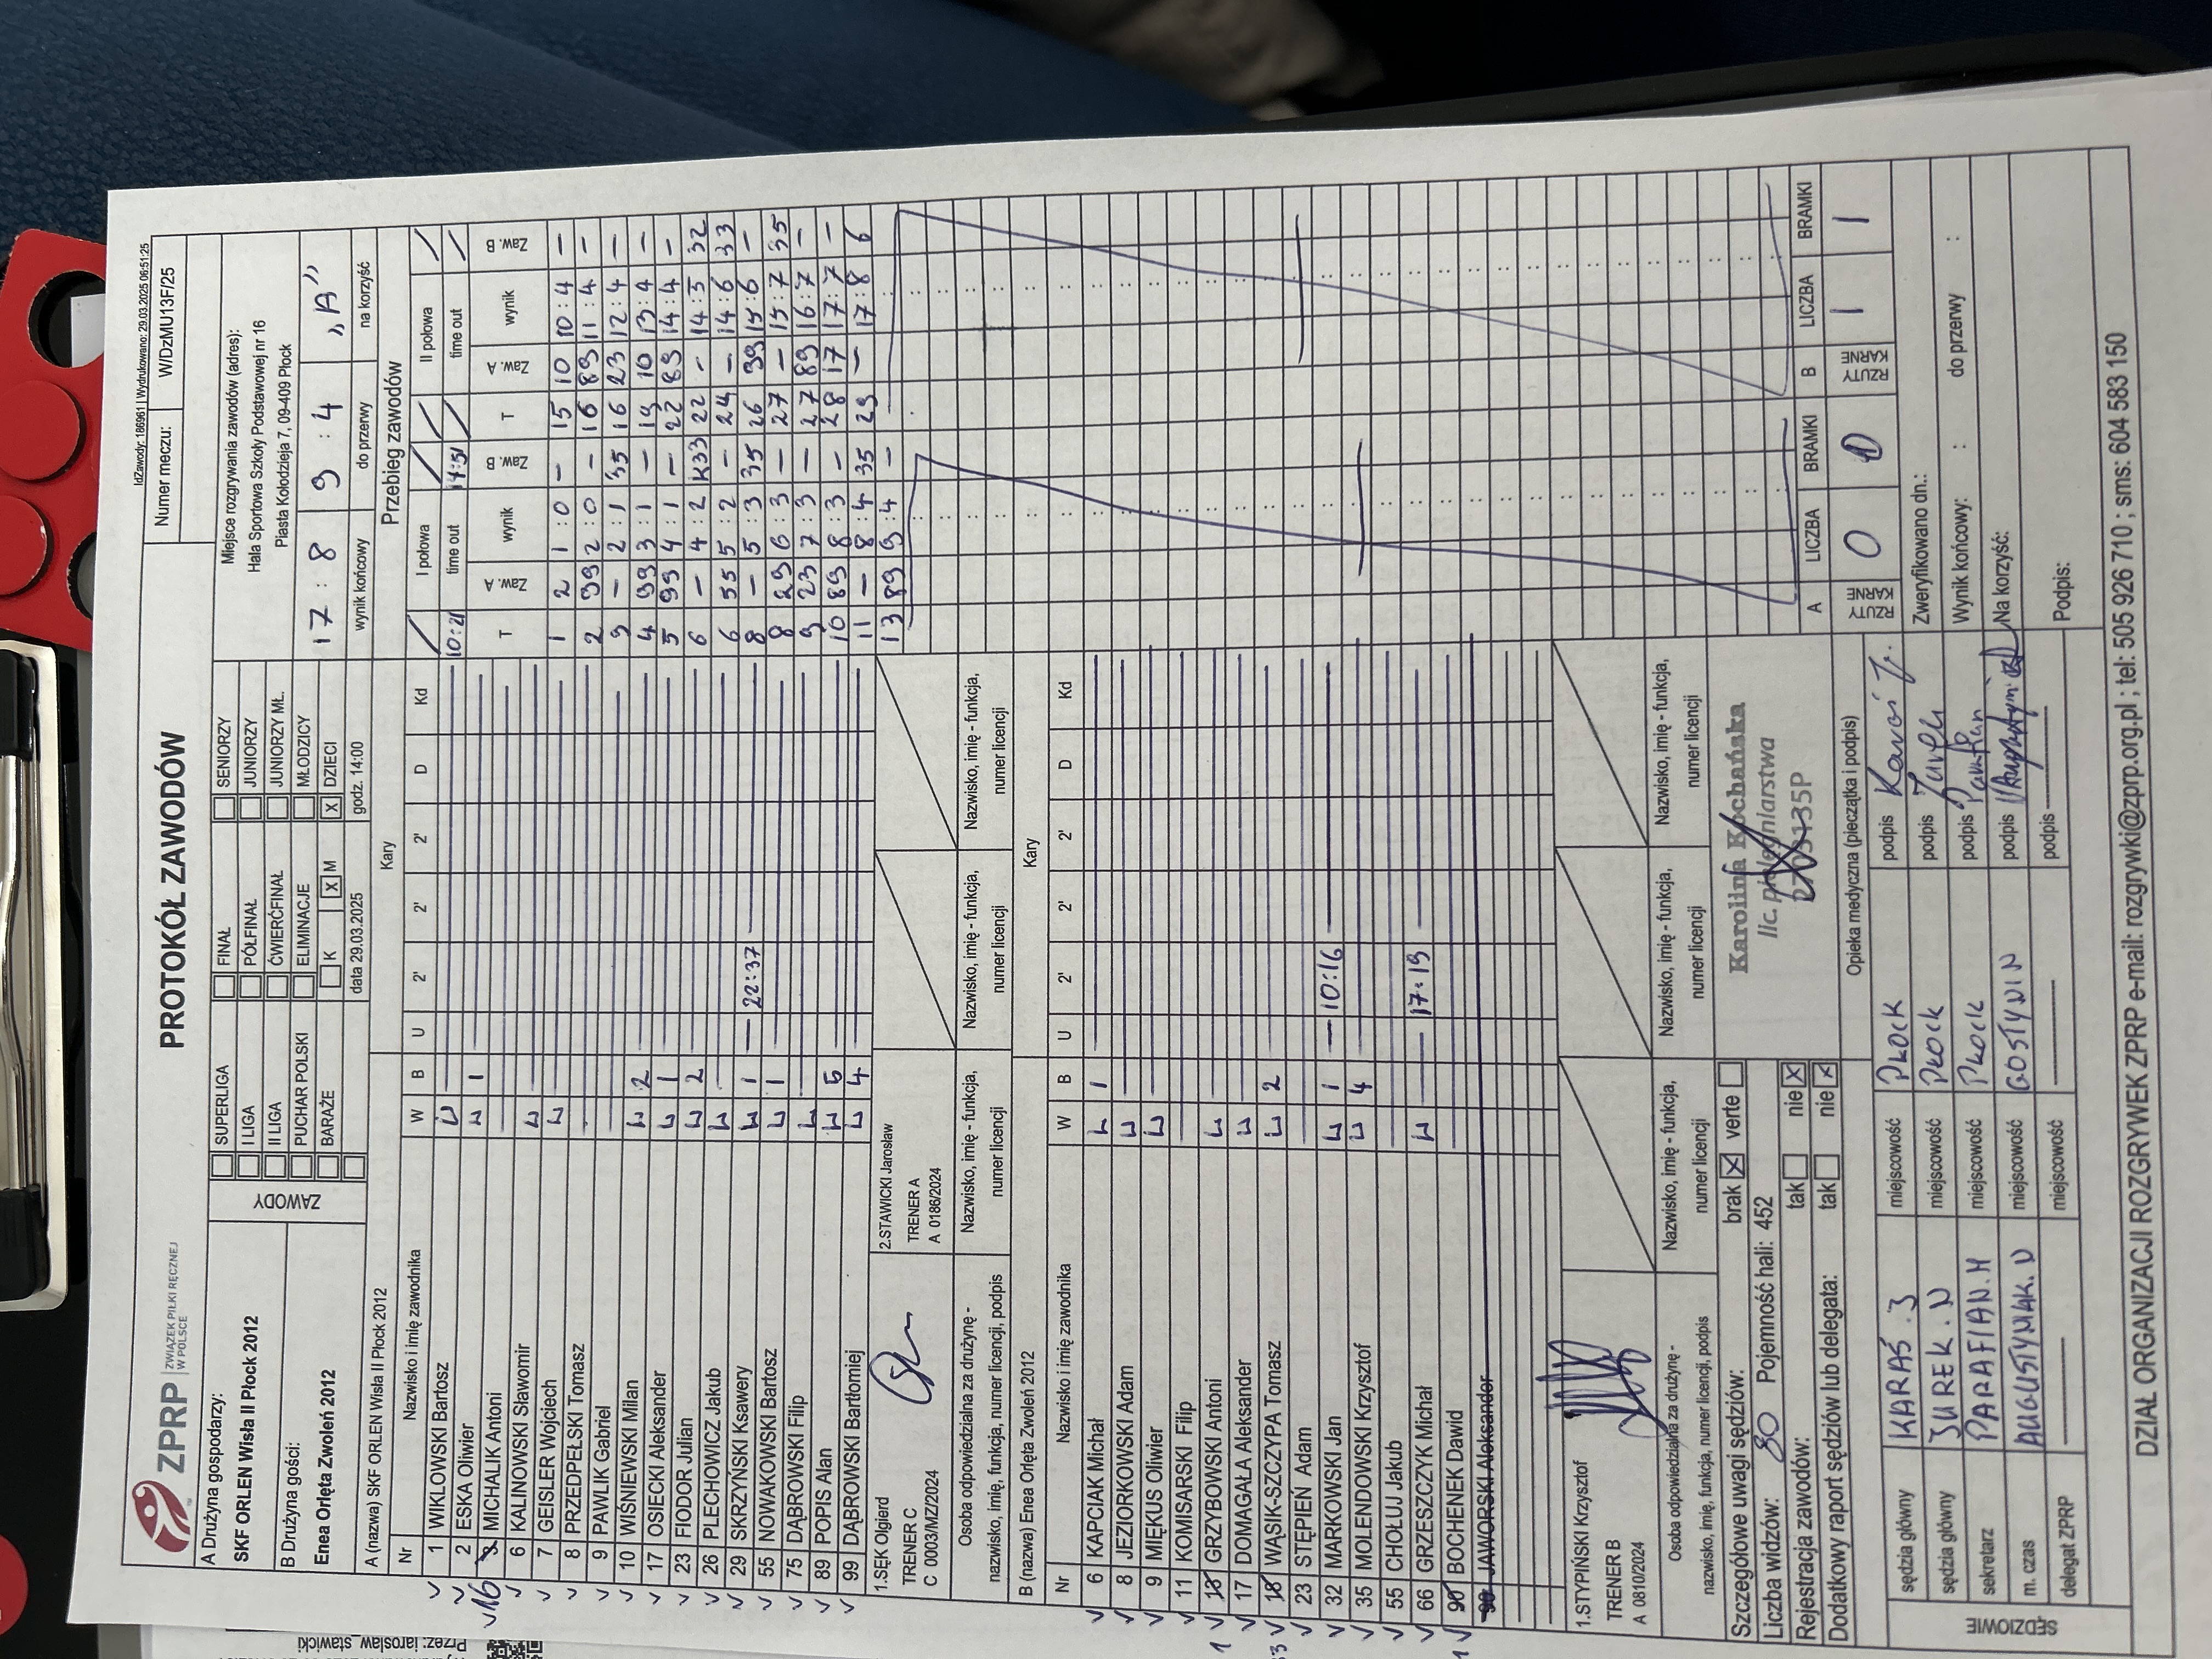 IdZawody: 186961 | Wydrukowano: 29.03.2025 06:51:25
ZPRP ZWIĄZEK PIŁKI RĘCZNEJ W POLSCE
PROTOKÓŁ ZAWODÓW
Numer meczu: WDzMU13F/25
A Drużyna gospodarzy:
SKF ORLEN Wisła II Płock 2012
B Drużyna gości:
Enea Orlęta Zwoleń 2012
ZAWODY
SUPERLIGA FINAŁ SENIORZY
I LIGA PÓŁFINAŁ JUNIORZY
II LIGA ĆWIERĆFINAŁ JUNIORZY MŁ.
PUCHAR POLSKI ELIMINACJE MŁODZICY
BARAŻE K X M X DZIECI
data 29.03.2025 godz. 14:00
Miejsce rozgrywania zawodów (adres):
Hala Sportowa Szkoły Podstawowej nr 16
Piasta Kołodzieja 7, 09-409 Płock
17 : 8 9 : 4 „A”
wynik końcowy do przerwy na korzyść
A (nazwa) SKF ORLEN Wisła II Płock 2012 Kary
Nr Nazwisko i imię zawodnika W B U 2' 2' 2' D Kd
1 WIKLOWSKI Bartosz
2 ESKA Oliwier 1
16 3 MICHALIK Antoni
6 KALINOWSKI Sławomir
7 GEISLER Wojciech
8 PRZEDPEŁSKI Tomasz
9 PAWLIK Gabriel
10 WIŚNIEWSKI Milan 2
17 OSIECKI Aleksander 1
23 FIODOR Julian 2
26 PLECHOWICZ Jakub
29 SKRZYŃSKI Ksawery 1 22:37
55 NOWAKOWSKI Bartosz 1
75 DĄBROWSKI Filip
89 POPIS Alan 5
99 DĄBROWSKI Bartłomiej 4
1.SĘK Olgierd
TRENER C
C 0003/MZ/2024
2.STAWICKI Jarosław
TRENER A
A 0186/2024
Osoba odpowiedzialna za drużynę -
nazwisko, imię, funkcja, numer licencji, podpis
Nazwisko, imię - funkcja,
numer licencji
Nazwisko, imię - funkcja,
numer licencji
Nazwisko, imię - funkcja,
numer licencji
B (nazwa) Enea Orlęta Zwoleń 2012 Kary
Nr Nazwisko i imię zawodnika W B U 2' 2' 2' D Kd
6 KAPCIAK Michał 1
8 JEZIORKOWSKI Adam
9 MIĘKUS Oliwier
11 KOMISARSKI Filip
GRZYBOWSKI Antoni
17 DOMAGAŁA Aleksander
33 18 WĄSIK-SZCZYPA Tomasz 2
23 STĘPIEŃ Adam
32 MARKOWSKI Jan 1 10:16
35 MOLENDOWSKI Krzysztof 4
55 CHOŁUJ Jakub
66 GRZESZCZYK Michał 17:19
90 BOCHENEK Dawid
JAWORSKI Aleksander
1.STYPIŃSKI Krzysztof
TRENER B
A 0810/2024
Osoba odpowiedzialna za drużynę -
nazwisko, imię, funkcja, numer licencji, podpis
Nazwisko, imię - funkcja,
numer licencji
Nazwisko, imię - funkcja,
numer licencji
Nazwisko, imię - funkcja,
numer licencji
Przebieg zawodów
I połowa II połowa
10:21 time out 14:51 time out
T Zaw. A wynik Zaw. B T Zaw. A wynik Zaw. B
1 2 1 : 0 — 15 10 10 : 4 —
2 99 2 : 0 — 16 89 11 : 4 —
3 — 2 : 1 35 16 23 12 : 4 —
4 99 3 : 1 — 19 10 13 : 4 —
5 99 4 : 1 — 22 89 14 : 4 —
6 — 4 : 2 K33 22 — 14 : 5 32
6 55 5 : 2 — 24 — 14 : 6 33
8 — 5 : 3 35 26 99 15 : 6 —
8 29 6 : 3 — 27 — 15 : 7 35
9 23 7 : 3 — 27 89 16 : 7 —
10 89 8 : 3 — 28 17 17 : 7 —
11 — 8 : 4 35 29 — 17 : 8 6
13 89 9 : 4 —
A RZUTY KARNE LICZBA 0 BRAMKI 0
B RZUTY KARNE LICZBA 1 BRAMKI 1
Szczegółowe uwagi sędziów: brak X verte
Liczba widzów: 80 Pojemność hali: 452
Rejestracja zawodów: tak nie X
Dodatkowy raport sędziów lub delegata: tak nie X
Karolina Kochańska
lic. pielęgniarstwa
Opieka medyczna (pieczątka i podpis)
SĘDZIOWIE
sędzia główny KARAŚ . J miejscowość PŁOCK podpis
sędzia główny JUREK . N miejscowość PŁOCK podpis
sekretarz PARAFIAN . M miejscowość PŁOCK podpis
m. czas AUGUSTYNIAK . N miejscowość GOSTYNIN podpis
delegat ZPRP miejscowość podpis
Zweryfikowano dn.:
Wynik końcowy: : do przerwy :
Na korzyść:
Podpis:
DZIAŁ ORGANIZACJI ROZGRYWEK ZPRP e-mail: rozgrywki@zprp.org.pl ; tel: 505 926 710 ; sms: 604 583 150